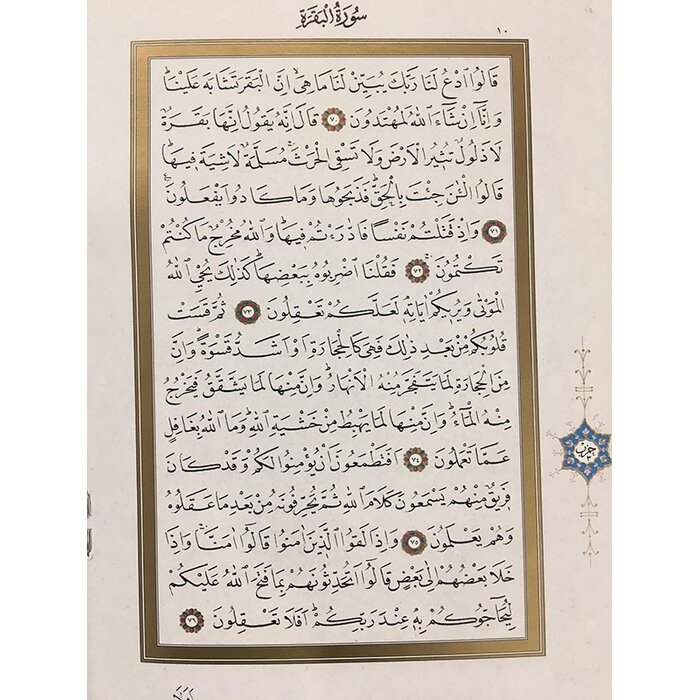 سُورَةُ الْبَقَرَةِ
١٠
قَالُوا ادْعُ لَنَا رَبَّكَ يُبَيِّنْ لَنَا مَا هِيَ اِنَّ الْبَقَرَ تَشَابَهَ عَلَيْنَاۜ
وَاِنَّٓا اِنْ شَٓاءَ اللّٰهُ لَمُهْتَدُونَ ﴿٧٠﴾ قَالَ اِنَّهُ يَقُولُ اِنَّهَا بَقَرَةٌ
لَا ذَلُولٌ تُثِيرُ الْاَرْضَ وَلَا تَسْقِي الْحَرْثَۚ مُسَلَّمَةٌ لَا شِيَةَ فِيهَاۜ
قَالُوا الْـٰٔنَ جِئْتَ بِالْحَقِّۜ فَذَبَحُوهَا وَمَا كَادُوا يَفْعَلُونَ۟
﴿٧١﴾ وَاِذْ قَتَلْتُمْ نَفْسًا فَادّٰرَءْتُمْ فِيهَاۜ وَاللّٰهُ مُخْرِجٌ مَا كُنْتُمْ
تَكْتُمُونَۚ ﴿٧٢﴾ فَقُلْنَا اضْرِبُوهُ بِبَعْضِهَاۜ كَذٰلِكَ يُحْيِ اللّٰهُ
الْمَوْتٰى وَيُرِيكُمْ اٰيَاتِهِ لَعَلَّكُمْ تَعْقِلُونَ ﴿٧٣﴾ ثُمَّ قَسَتْ
قُلُوبُكُمْ مِنْ بَعْدِ ذٰلِكَ فَهِيَ كَالْحِجَارَةِ اَوْ اَشَدُّ قَسْوَةًۜ وَاِنَّ
مِنَ الْحِجَارَةِ لَمَا يَتَفَجَّرُ مِنْهُ الْاَنْهَارُۜ وَاِنَّ مِنْهَا لَمَا يَشَّقَّقُ فَيَخْرُجُ
مِنْهُ الْمَٓاءُۜ وَاِنَّ مِنْهَا لَمَا يَهْبِطُ مِنْ خَشْيَةِ اللّٰهِۜ وَمَا اللّٰهُ بِغَافِلٍ
عَمَّا تَعْمَلُونَ ﴿٧٤﴾ اَفَتَطْمَعُونَ اَنْ يُؤْمِنُوا لَكُمْ وَقَدْ كَانَ
فَرِيقٌ مِنْهُمْ يَسْمَعُونَ كَلَامَ اللّٰهِ ثُمَّ يُحَرِّفُونَهُ مِنْ بَعْدِ مَا عَقَلُوهُ
وَهُمْ يَعْلَمُونَ ﴿٧٥﴾ وَاِذَا لَقُوا الَّذِينَ اٰمَنُوا قَالُٓوا اٰمَنَّاۚ وَاِذَا
خَلَا بَعْضُهُمْ اِلٰى بَعْضٍ قَالُٓوا اَتُحَدِّثُونَهُمْ بِمَا فَتَحَ اللّٰهُ عَلَيْكُمْ
لِيُحَٓاجُّوكُمْ بِهِ عِنْدَ رَبِّكُمْۜ اَفَلَا تَعْقِلُونَ ﴿٧٦﴾
اَوَلَا